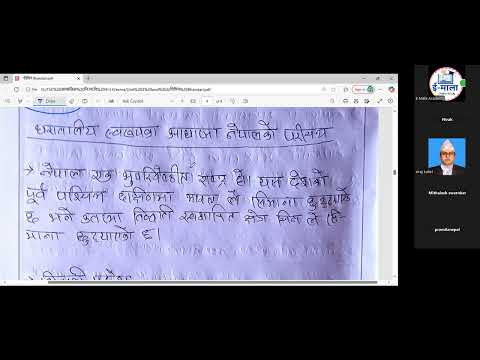 धरातलीय स्वरुपका आधारमा नेपालको परिचय
→ नेपाल एक भुपरिवेष्ठित राष्ट्र हो। यस देशको
पूर्व पश्चिम दक्षिणमा भारत ले सिमाना छुट्याएको
छ भने उत्तरमा तिब्बत स्वशासित क्षेत्र चिन ले सि-
माना छुट्याएको छ।
ई-माला
E-Mala Academy
Hivuk
Mithalesh swernkar
pramilanepal
Draw
Ask Copilot